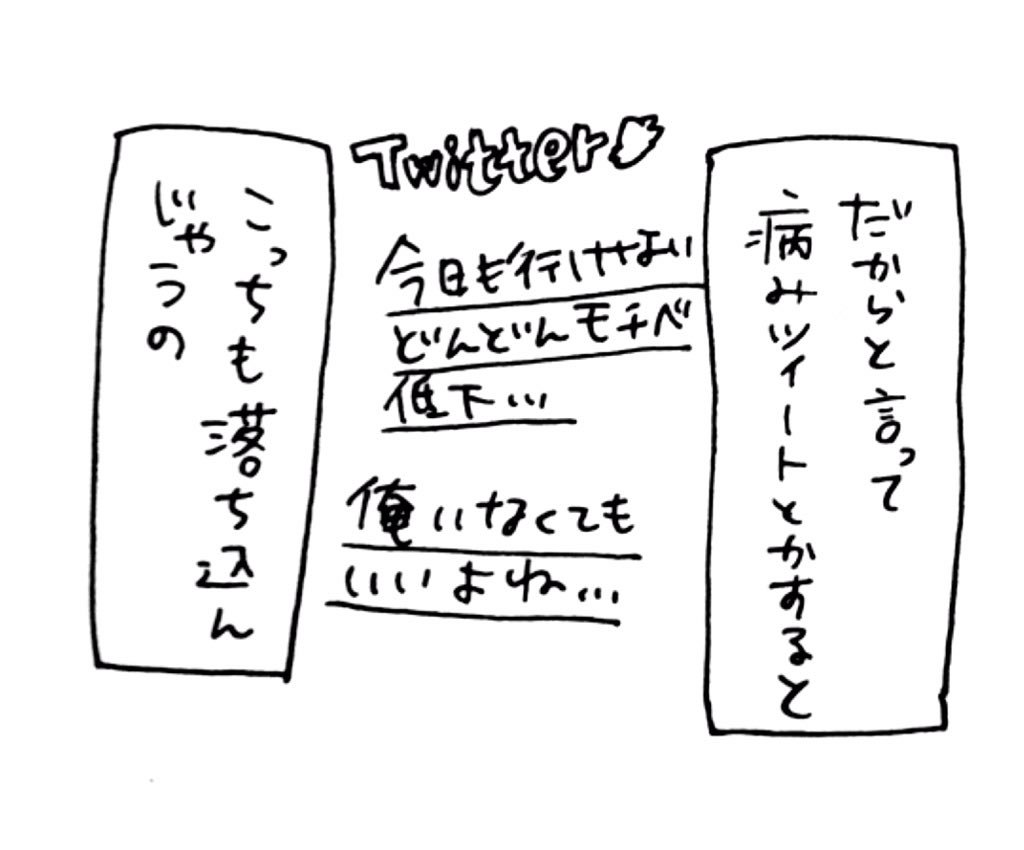 だからと言って
病みツイートとかすると
Twitter
今日も行けせない
どんどんモチベ
低下…
俺いなくても
いいよね…
こっちも落ち込ん
じゃうの